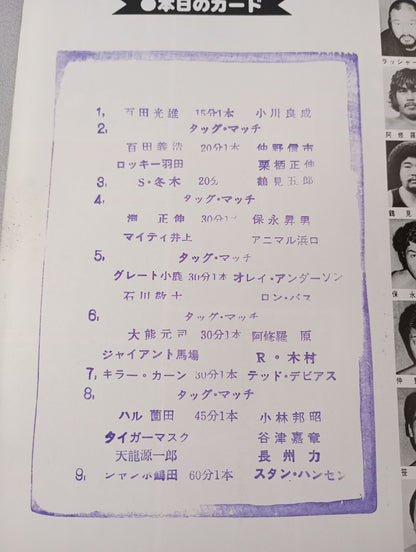 ●本日のカード
1, 百田光雄 15分1本 小川良成
2, タッグ・マッチ
百田義浩 20分1本 仲野信市
ロッキー羽田 栗栖正伸
3, S・冬木 20分 鶴見五郎
4, タッグ・マッチ
淵 正伸 30分1本 保永昇男
マイティ井上 アニマル浜口
5, タッグ・マッチ
グレート小鹿 30分1本 オレイ・アンダーソン
石川敬士 ロン・バス
6, タッグ・マッチ
大熊元司 30分1本 阿修羅 原
ジャイアント馬場 R・木村
7, キラー・カーン 30分1本 テッド・デビアス
8, タッグ・マッチ
ハル薗田 45分1本 小林邦昭
タイガーマスク 谷津嘉章
天龍源一郎 長州 力
9, ジャンボ鶴田 60分1本 スタン・ハンセン
ラッシャー
阿修羅
鶴見
保永
仲
笹